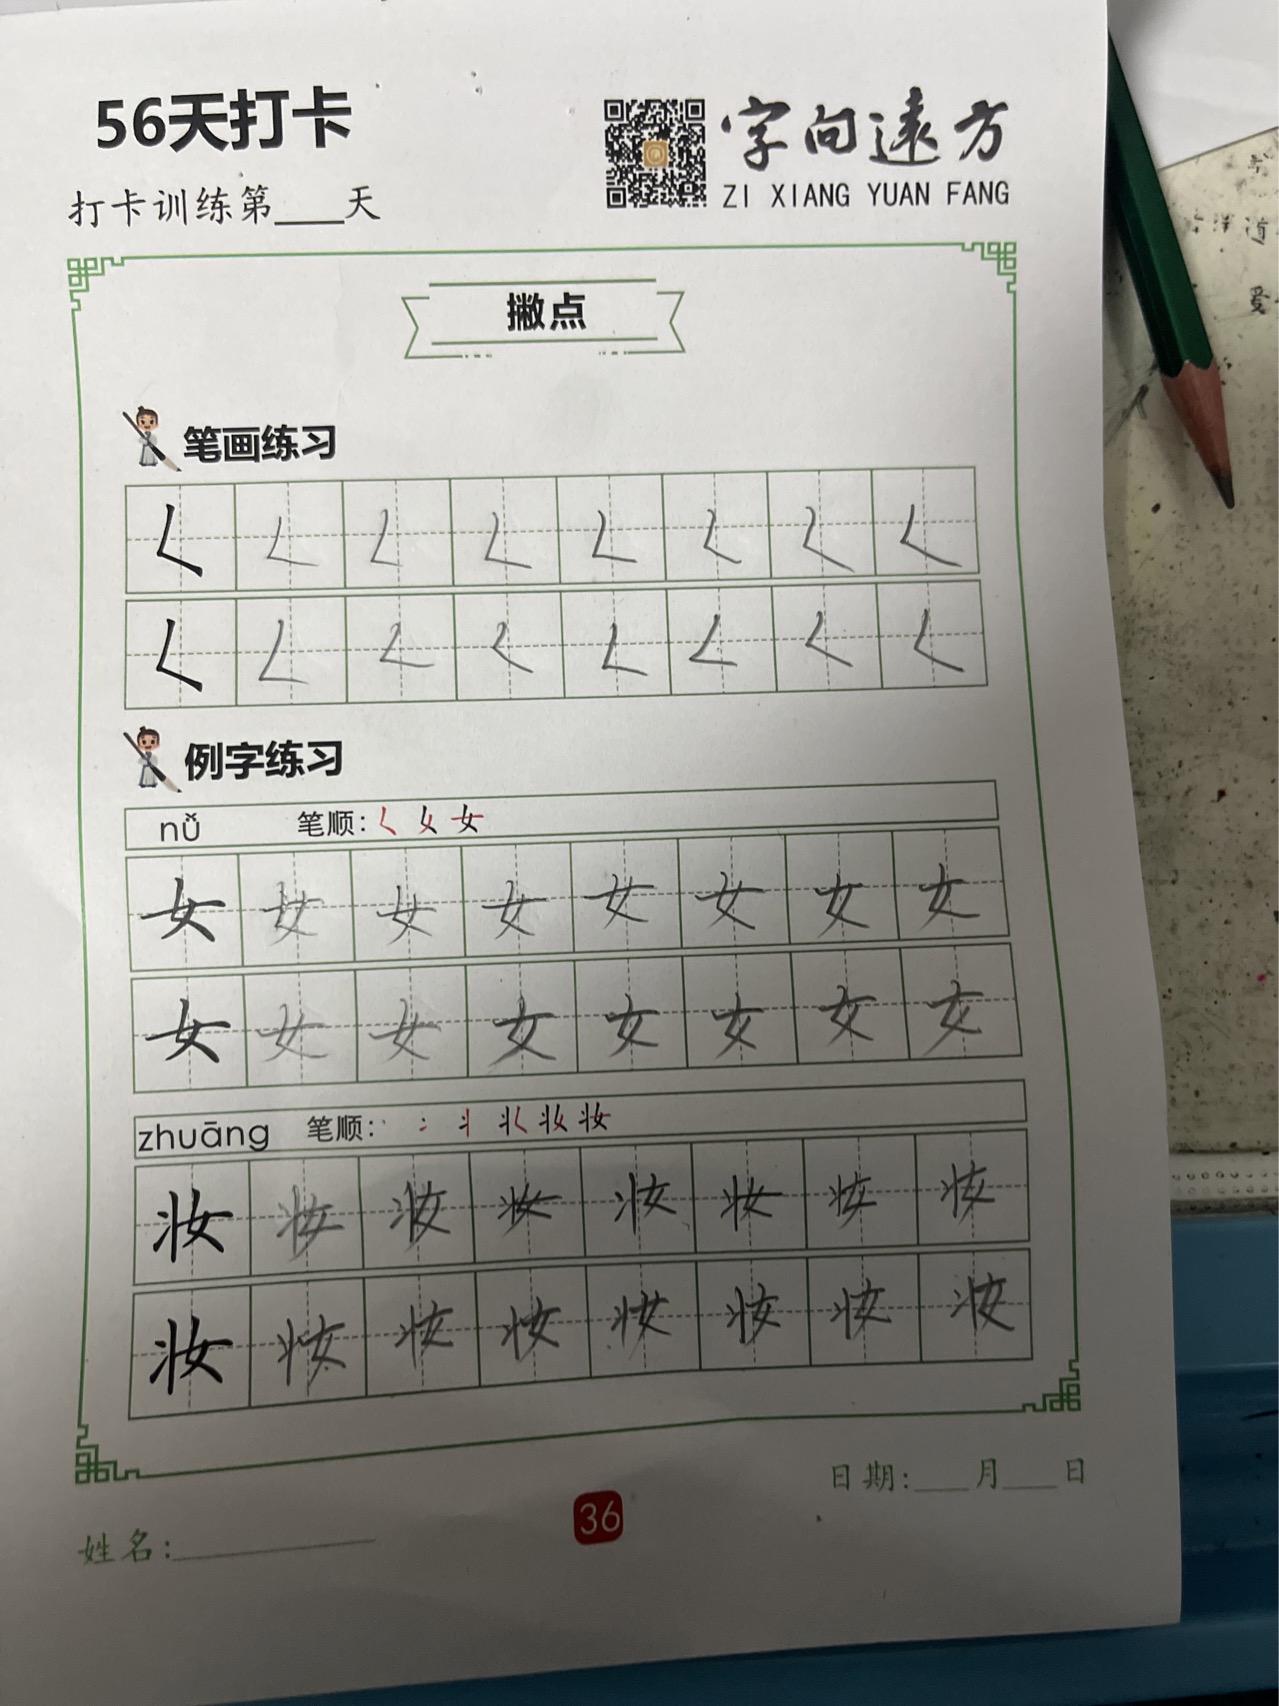 56天打卡
字向遠方
ZI XIANG YUAN FANG
打卡训练第___天
撇点
笔画练习
𡿨 𡿨 𡿨 𡿨 𡿨 𡿨 𡿨 𡿨
𡿨 𡿨 𡿨 𡿨 𡿨 𡿨 𡿨 𡿨
例字练习
nǚ 笔顺: 𡿨 女
女 女 女 女 女 女 女 女
女 女 女 女 女 女 女 女
zhuāng 笔顺: 丬 妆
妆 妆 妆 妆 妆 妆 妆 妆
妆 妆 妆 妆 妆 妆 妆 妆
日期:___月___日
姓名:
36
道
受